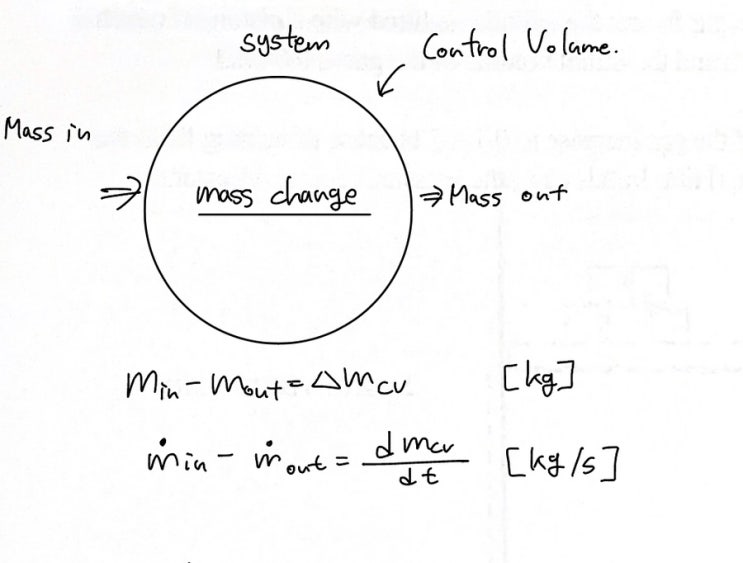 system
Control Volume.
Mass in
⇒ mass change ⇒ Mass out
m_in - m_out = Δm_cv [kg]
ṁ_in - ṁ_out = d m_cv / dt [kg/s]